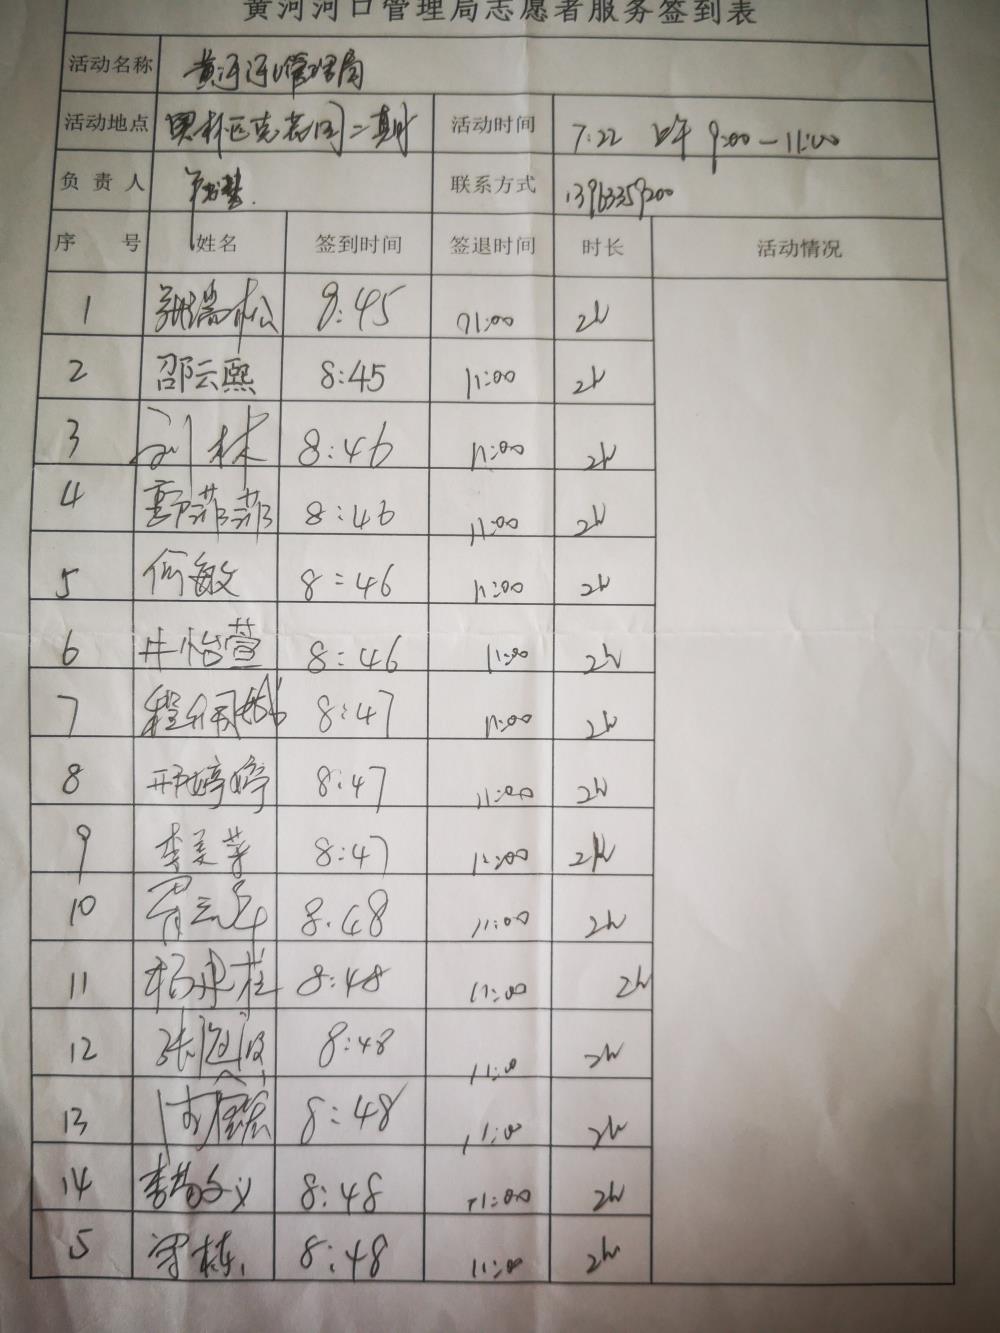 黄河河口管理局志愿者服务签到表
活动名称 黄河河口管理局
活动地点 奥林匹克花园二期 活动时间 7.22 上午 9:00—11:00
负责人 联系方式 13963359200
序号 姓名 签到时间 签退时间 时长 活动情况
1 8:45 11:00 2h
2 邵云熙 8:45 11:00 2h
3 刘林 8:46 11:00 2h
4 8:46 11:00 2h
5 何敏 8:46 11:00 2h
6 牛怡萱 8:46 11:00 2h
7 8:47 11:00 2h
8 邢婷婷 8:47 11:00 2h
9 8:47 11:00 2h
10 8.48 11:00 2h
11 8:48 11:00 2h
12 8:48 11:00 2h
13 8:48 11:00 2h
14 8:48 11:00 2h
5 8:48 11:00 2h